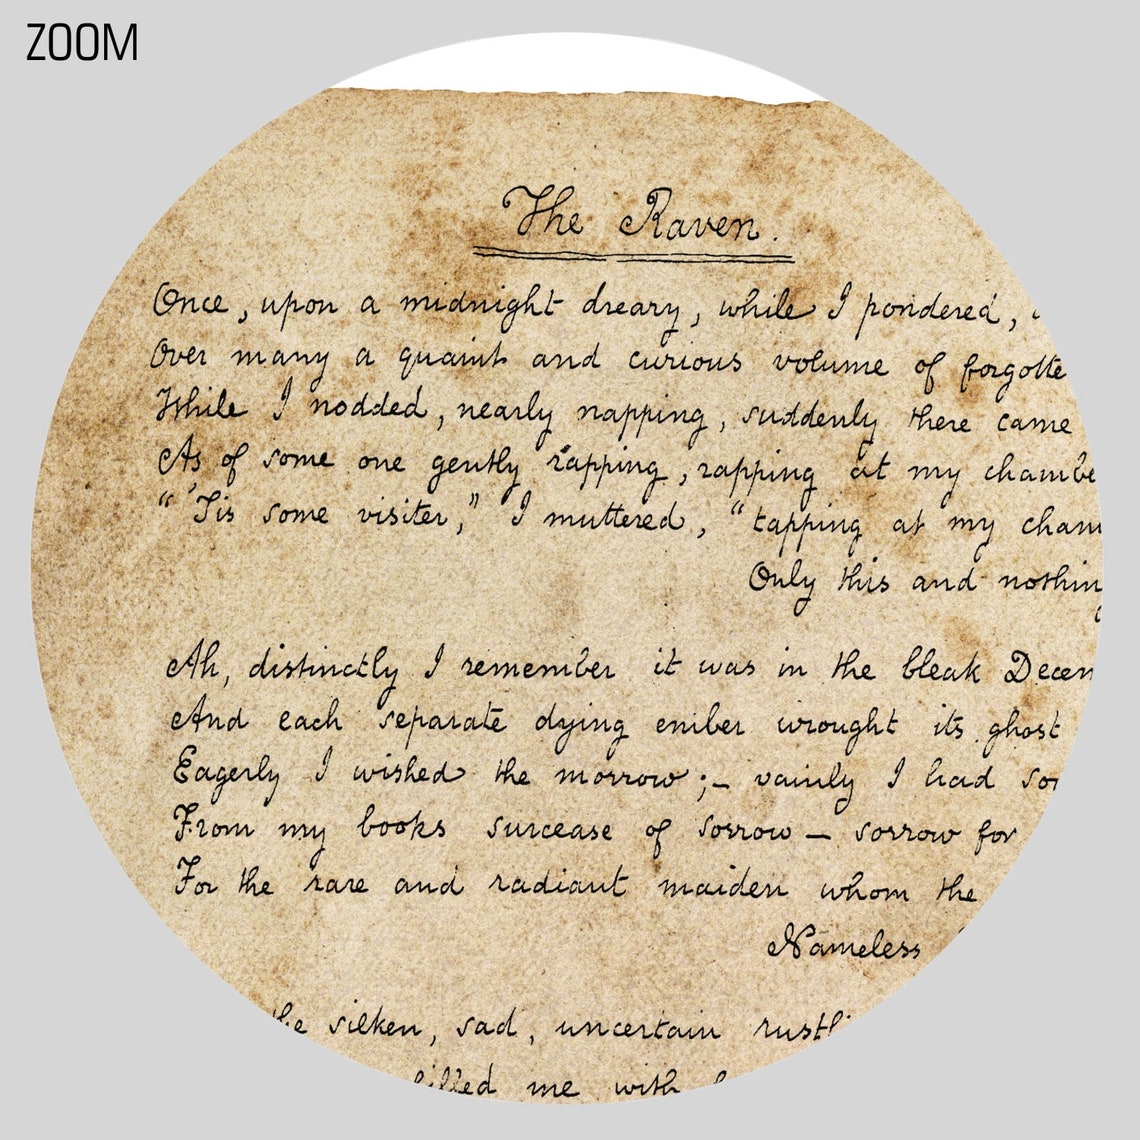 ZOOM
The Raven.
Once, upon a midnight dreary, while I pondered,
Over many a quaint and curious volume of forgotte
While I nodded, nearly napping, suddenly there came
As of some one gently rapping, rapping at my chambe
“ 'Tis some visiter,” I muttered, “tapping at my cham
Only this and nothing
Ah, distinctly I remember it was in the bleak Decem
And each separate dying ember wrought its ghost
Eagerly I wished the morrow;– vainly I had so
From my books surcease of sorrow – sorrow for
For the rare and radiant maiden whom the
Nameless
the silken, sad, uncertain rustli
illed me with